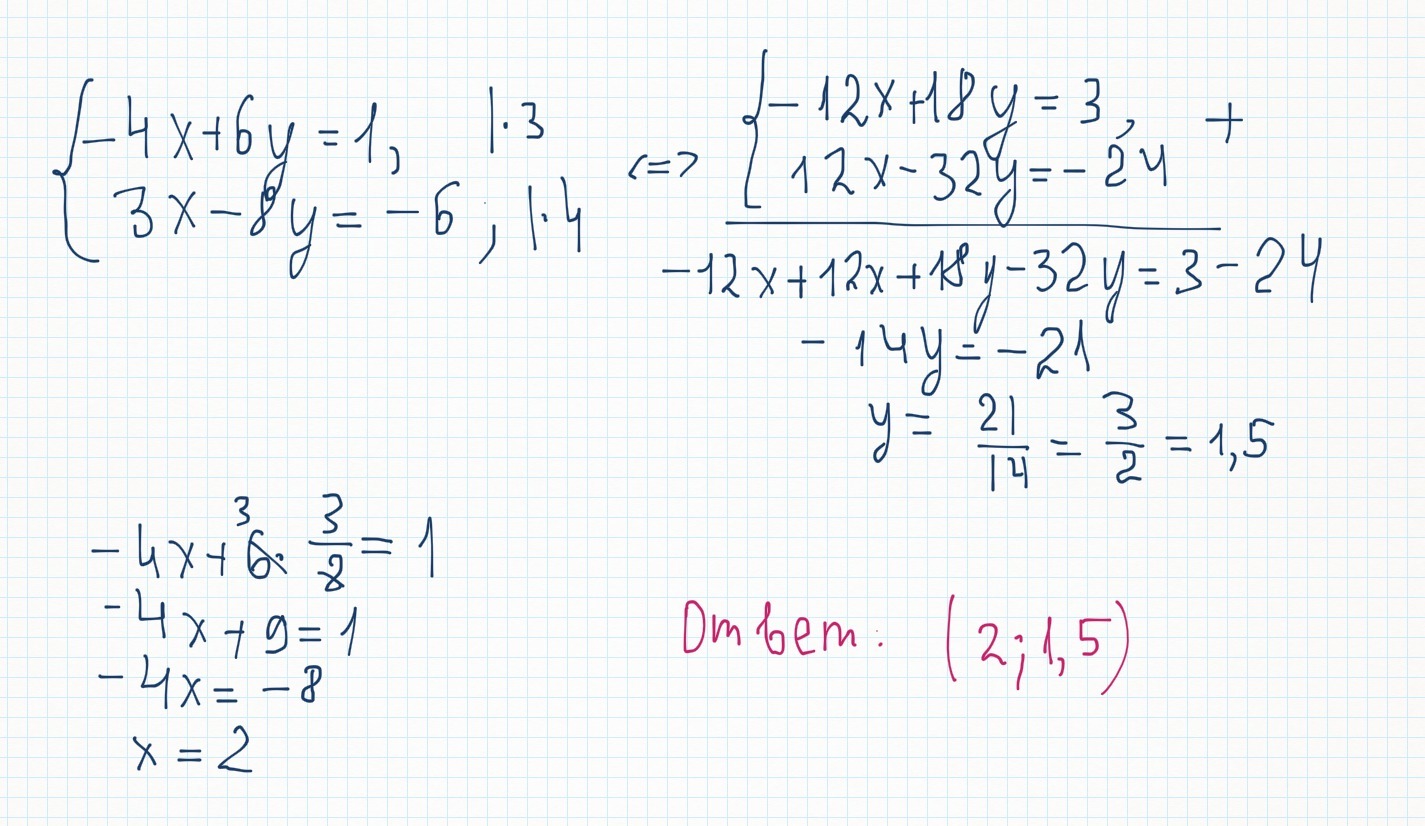 -4x+6y=1, |·3
3x-8y=-6, |·4
<=>
-12x+18y=3, +
12x-32y=-24
-12x+12x+18y-32y=3-24
-14y=-21
y= 21/14 = 3/2 = 1,5
3
-4x+6· 3/2 = 1
-4x+9=1
-4x=-8
x=2
Ответ: (2; 1,5)